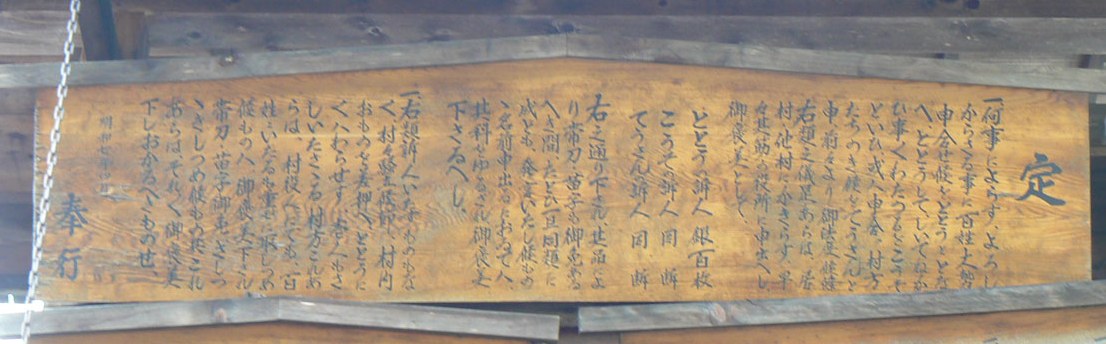 定
一何事によらす、よろし
からさる事に百姓大勢
申合せ候をととうとな
へ、ととうして、しいてねか
ひ事くわたつるをこうそ
といひ、或ハ申合、村方
たちのき候をてうさんと
申、前々より御法度に候条
右類之儀これあらは、居
村他村にかきらす、早
々其筋の役所に申出へし、
御褒美として、
ととうの訴人 銀百枚
こうその訴人 同断
てうさんの訴人 同断
右之通り下され、其品によ
り帯刀苗字も御免ある
へき間、たとひ一旦同類に
成とも、発言いたし候もの
ゝ名前申出るにおゐてハ、
其科をゆるされ、御褒美
下さるへし、
一右類訴人いたすものもな
く、村々騒立候節、村内
のものを差押へ、ととうに
くハわらせす、一人もさ
しいたさゝる村方これあ
らは、村役人にても、百
姓にても、重にとりしつめ
候ものハ、御褒美下され
帯刀苗字御免、さしつ
ゝきしつめ候ものともこれ
あらは、それ／＼御褒美
下しおかるへきもの也、
明和七年四月
奉行